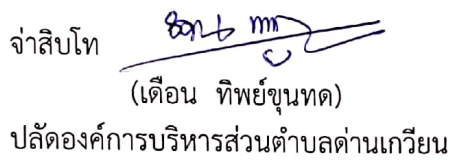 จ่าสิบโท
(เดือน ทิพย์ขุนทด)
ปลัดองค์การบริหารส่วนตำบลด่านเกวียน